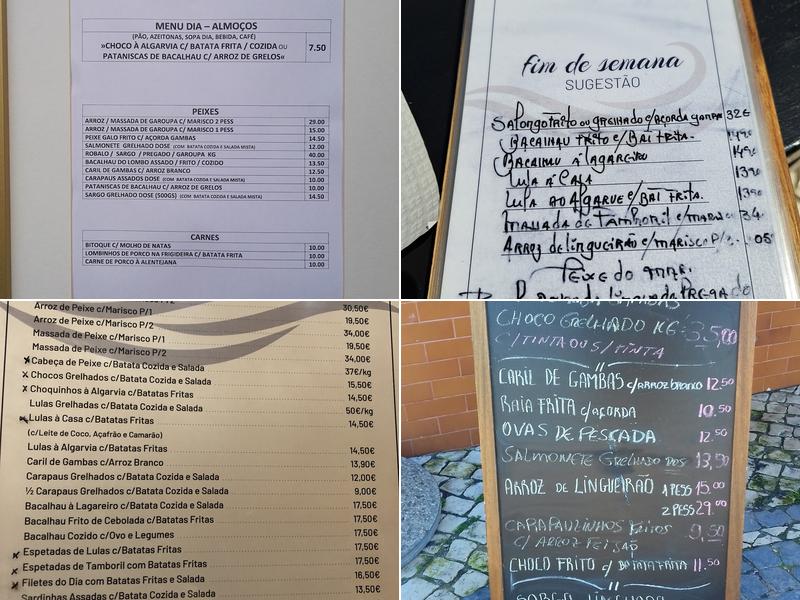 MENU DIA – ALMOÇOS
(PÃO, AZEITONAS, SOPA DIA, BEBIDA, CAFÉ)
»CHOCO À ALGARVIA C/ BATATA FRITA / COZIDA OU
PATANISCAS DE BACALHAU C/ ARROZ DE GRELOS« 7.50
PEIXES
ARROZ / MASSADA DE GAROUPA C/ MARISCO 2 PESS 29.00
ARROZ / MASSADA DE GAROUPA C/ MARISCO 1 PESS 15.00
PEIXE GALO FRITO C/ AÇORDA GAMBAS 14.50
SALMONETE GRELHADO DOSE (COM BATATA COZIDA E SALADA MISTA) 12.00
ROBALO / SARGO / PREGADO / GAROUPA KG 40.00
BACALHAU DO LOMBO ASSADO / FRITO / COZIDO 13.50
CARIL DE GAMBAS C/ ARROZ BRANCO 12.50
CARAPAUS ASSADOS DOSE (COM BATATA COZIDA E SALADA MISTA) 10.00
PATANISCAS DE BACALHAU C/ ARROZ DE GRELOS 10.00
SARGO GRELHADO DOSE (500GS) (COM BATATA COZIDA E SALADA MISTA) 14.50
CARNES
BITOQUE C/ MOLHO DE NATAS 10.00
LOMBINHOS DE PORCO NA FRIGIDEIRA C/ BATATA FRITA 10.00
CARNE DE PORCO À ALENTEJANA 10.00
fim de semana
SUGESTÃO
ou Grelhado c/Açorda Gampa 32€
Bacalhau Frito c/ Bat Frita. 14,90
Bacalhau á lagareiro 14,90
Lula á Casa 13,90
Lula ao Algarve c/ Bat Frita. 13,90
Massada de Tamboril c/ 34
Arroz de lingueirão c/ marisco P/2
Peixe do mar.
Arroz de Peixe c/Marisco P/1 30,50€
Arroz de Peixe c/Marisco P/2 19,50€
Massada de Peixe c/Marisco P/1 34,00€
Massada de Peixe c/Marisco P/2 19,50€
Cabeça de Peixe c/Batata Cozida e Salada 34,00€
Chocos Grelhados c/Batata Cozida e Salada 37€/kg
Choquinhos à Algarvia c/Batatas Fritas 15,50€
Lulas Grelhadas c/Batatas Cozida e Salada 14,50€
Lulas à Casa c/Batatas Fritas 50€/kg
(c/Leite de Coco, Açafrão e Camarão) 14,50€
Lulas à Algarvia c/Batatas Fritas 14,50€
Caril de Gambas c/Arroz Branco 13,90€
Carapaus Grelhados c/Batata Cozida e Salada 12,00€
½ Carapaus Grelhados c/Batata Cozida e Salada 9,00€
Bacalhau à Lagareiro c/Batata Cozida e Salada 17,50€
Bacalhau Frito de Cebolada c/Batatas Fritas 17,50€
Bacalhau Cozido c/Ovo e Legumes 17,50€
Espetadas de Lulas c/Batatas Fritas 17,50€
Espetadas de Tamboril com Batatas Fritas 17,50€
Filetes do Dia com Batatas Fritas e Salada 16,50€
Sardinhas Assadas c/Batata Cozida e Salada 13,50€
CHOCO GRELHADO KG 35,00
C/ TINTA OU S/ TINTA
CARIL DE GAMBAS c/ARROZ BRANCO 12.50
RAIA FRITA c/AÇORDA 10.50
OVAS DE PESCADA 12.50
SALMONETE GRELHADO DOS 13,50
ARROZ DE LINGUEIRÃO 1 PESS 15.00
2 PESS 29.00
CARAPAUZINHOS FRITOS 9,50
C/ ARROZ FEIJÃO
CHOCO FRITO c/ BATATA FRITA 11.50